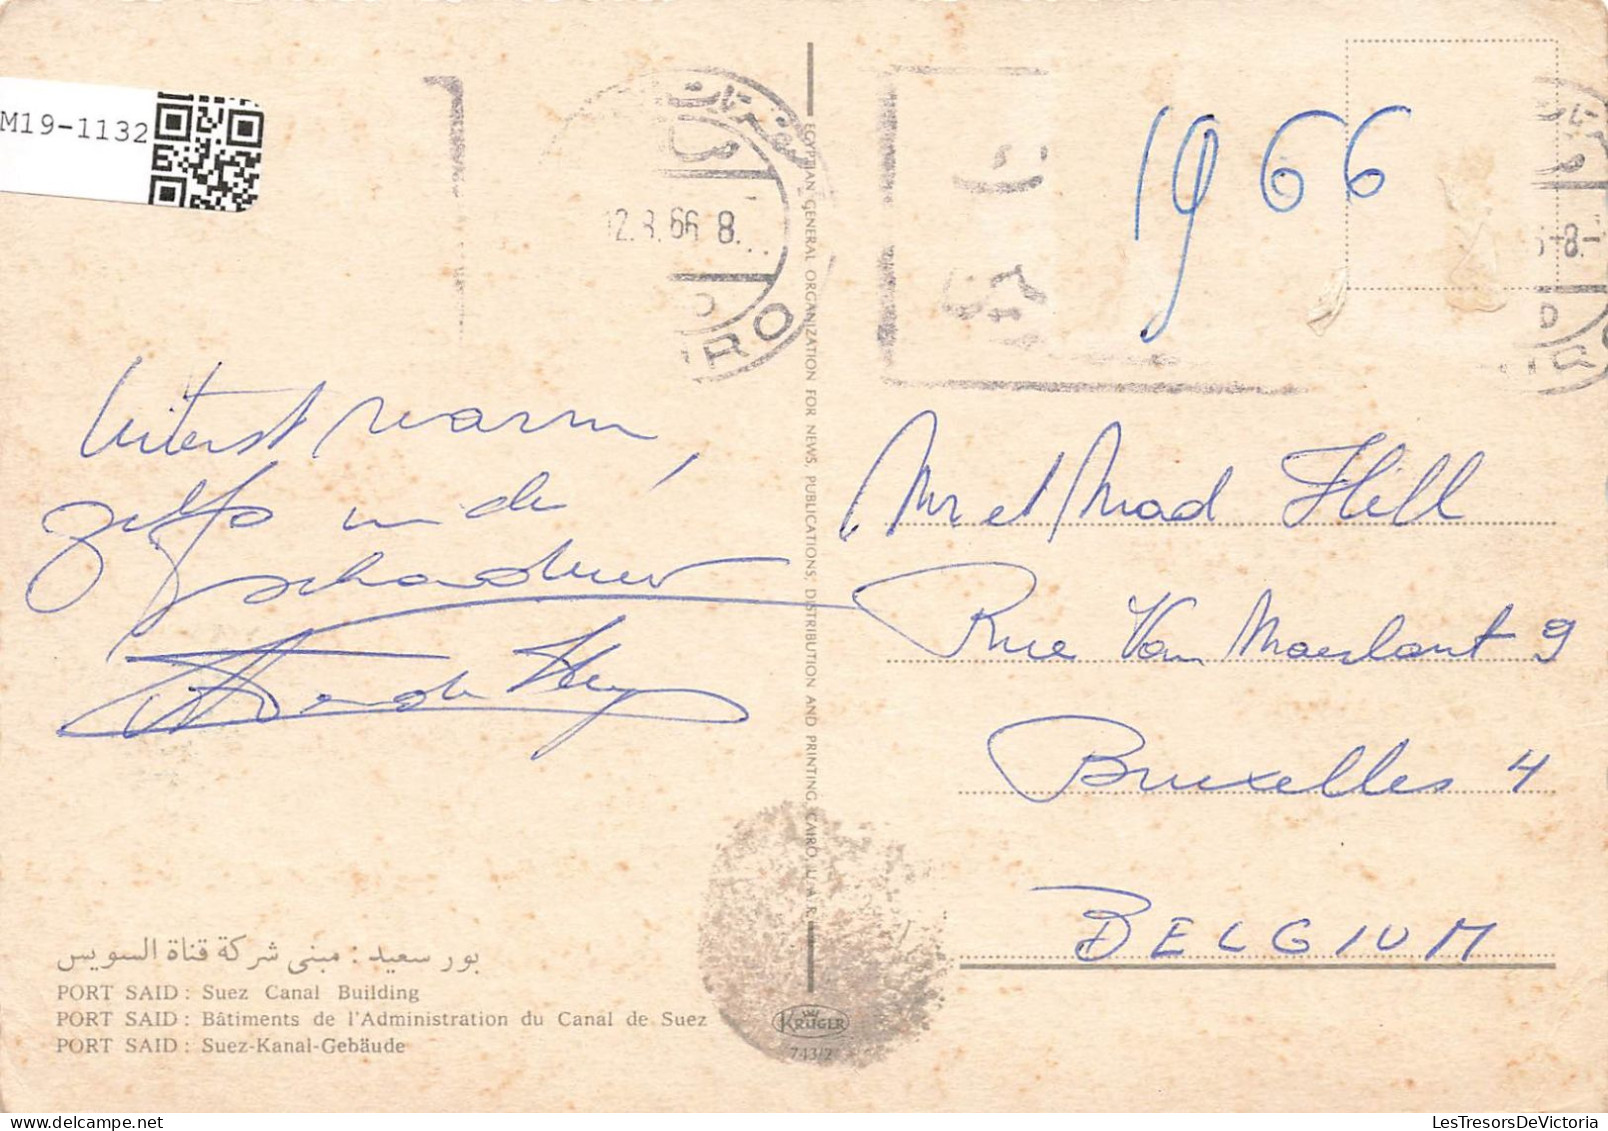 M19-1132
12.8.66 8.
RO
1966
EGYPTIAN GENERAL ORGANIZATION FOR NEWS, PUBLICATIONS, DISTRIBUTION AND PRINTING, CAIRO, U.A.R.
Uiterst warm,
zelfs in de
schaduw
Mr et Mad Hell
Rue Van Maerlant 9
Bruxelles 4
BELGIUM
بور سعيد : مبنى شركة قناة السويس
PORT SAID : Suez Canal Building
PORT SAID : Bâtiments de l'Administration du Canal de Suez
PORT SAID : Suez-Kanal-Gebäude
KRÜGER
743/2
LesTresorsDeVictoria.com